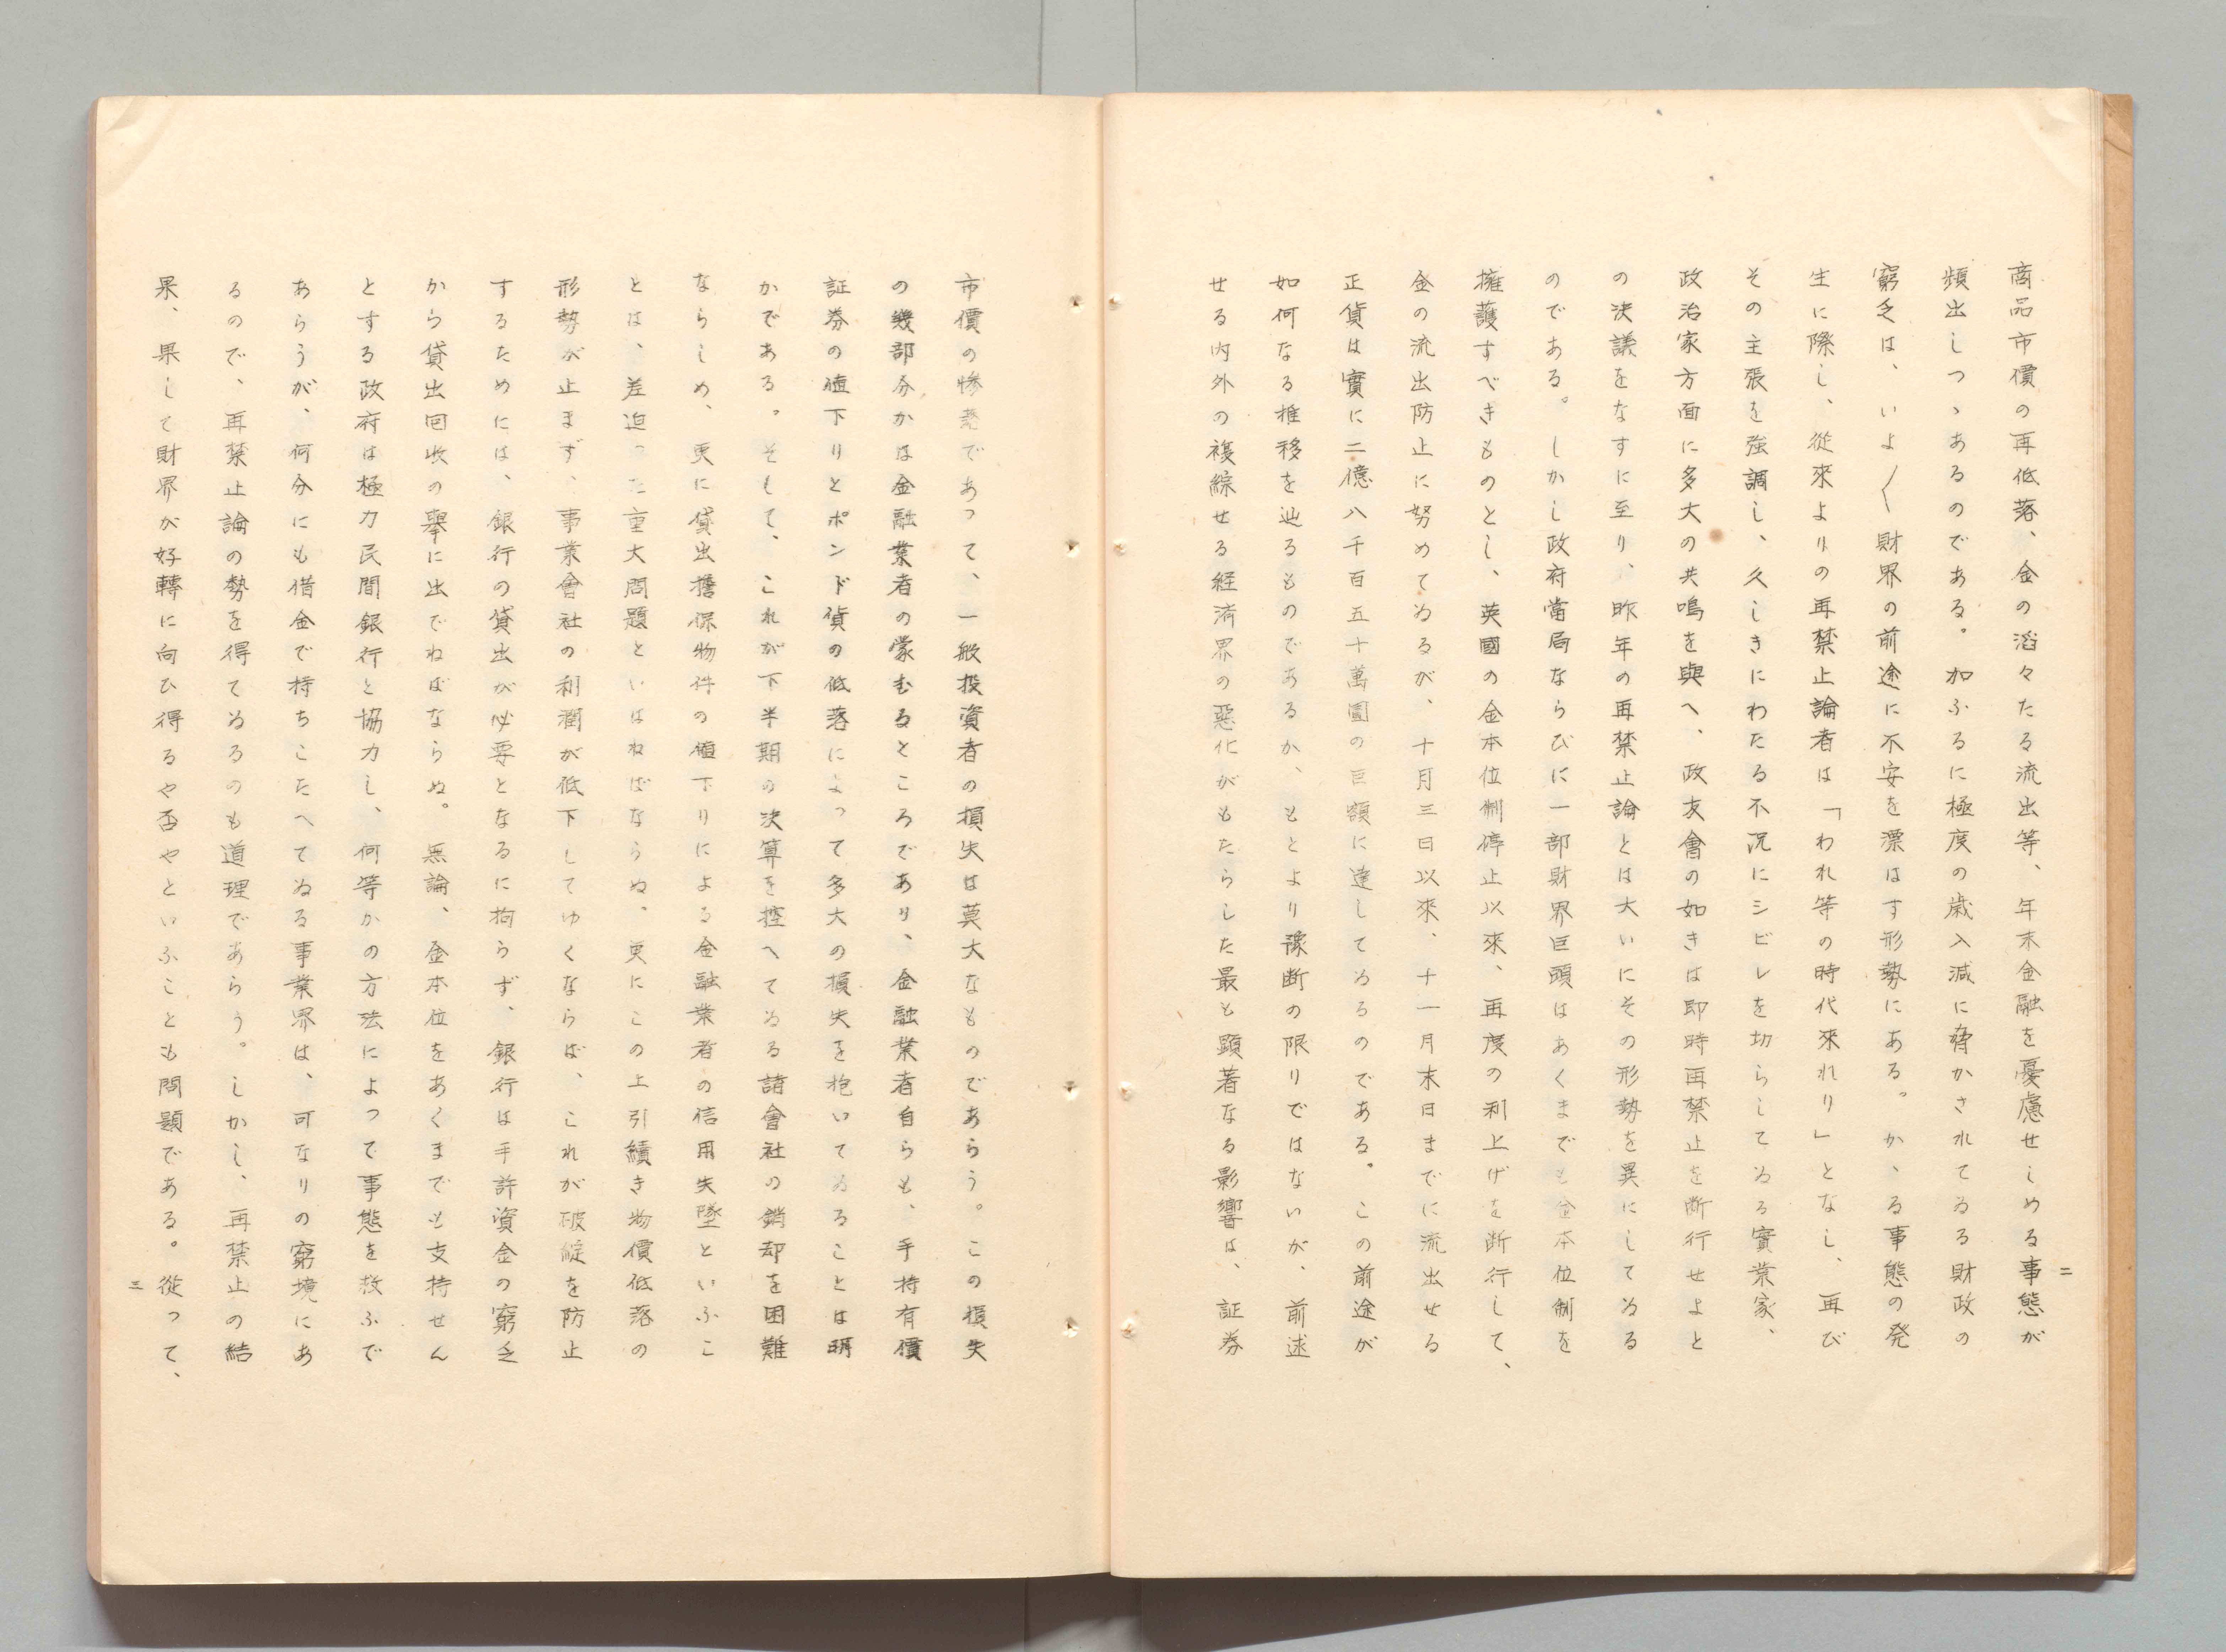 商品市價の再低落、金の滔々たる流出等、年末金融を憂慮せしめる事態が
頻出しつゝあるのである。加ふるに極度の歳入減に脅かされてゐる財政の
窮乏は、いよ〱財界の前途に不安を漂はす形勢にある。かゝる事態の発
生に際し、從來よりの再禁止論者は「われ等の時代來れり」となし、再び
その主張を強調し、久しきにわたる不況にシビレを切らしてゐる實業家、
政治家方面に多大の共鳴を與へ、政友會の如きは即時再禁止を断行せよと
の決議をなすに至り、昨年の再禁止論とは大いにその形勢を異にしてゐる
のである。しかし政府當局ならびに一部財界巨頭はあくまでも金本位制を
擁護すべきものとし、英國の金本位制停止以來、再度の利上げを断行して、
金の流出防止に努めてゐるが、十月三日以來、十一月末日までに流出せる
正貨は實に二億八千百五十萬圓の巨額に達してゐるのである。この前途が
如何なる推移を辿るものであるか、もとより豫断の限りではないが、前述
せる内外の複綜せる経済界の惡化がもたらした最も顕著なる影響は、証券
二
市價の惨落であつて、一般投資者の損失は莫大なものであらう。この損失
の幾部分かは金融業者の蒙むるところであり、金融業者自らも、手持有價
証券の値下りとポンド貨の低落によつて多大の損失を抱いてゐることは明
かである。そして、これが下半期の決算を控へてゐる諸會社の銷却を困難
ならしめ、更に貸出擔保物件の値下りによる金融業者の信用失墜といふこ
とは、差迫つた重大問題といはねばならぬ、更にこの上引續き物價低落の
形勢が止まず、事業會社の利潤が低下してゆくならば、これが破綻を防止
するためには、銀行の貸出が必要となるに拘らず、銀行は手許資金の窮乏
から貸出回收の擧に出でねばならぬ。無論、金本位をあくまでも支持せん
とする政府は極力民間銀行と協力し、何等かの方法によつて事態を救ふで
あらうが、何分にも借金で持ちこたへてゐる事業界は、可なりの窮境にあ
るので、再禁止論の勢を得てゐるのも道理であらう。しかし、再禁止の結
果、果して財界が好轉に向ひ得るや否やといふことも問題である。從つて、
三